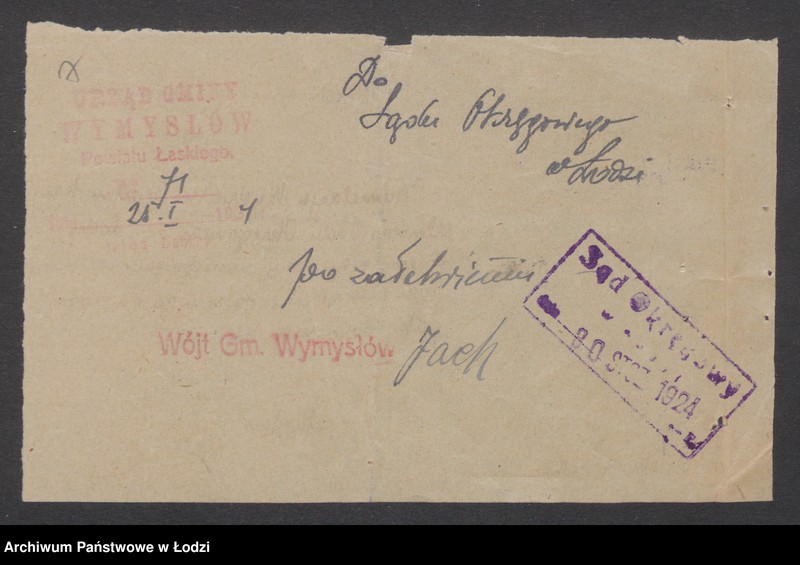 URZĄD GMINY
WYMYSŁÓW
Powiatu Łaskiego.
71
25 I 4
Do
Sądu Okręgowego
w Łodzi
po załatwieniu
Wójt Gm. Wymysłów
Sąd Okręgowy
w
30 STCZ. 1924
Archiwum Państwowe w Łodzi